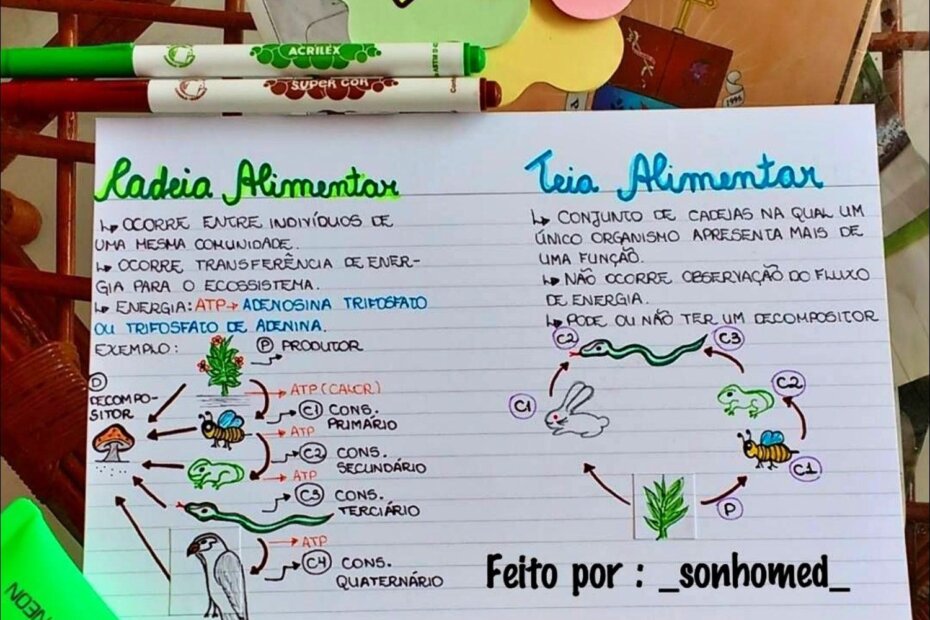 ACRILEX
SUPER COR
1995
Cadeia Alimentar
↳ OCORRE ENTRE INDIVÍDUOS DE
UMA MESMA COMUNIDADE.
↳ OCORRE TRANSFERÊNCIA DE ENER-
GIA PARA O ECOSSISTEMA.
↳ ENERGIA: ATP → ADENOSINA TRIFOSFATO
OU TRIFOSFATO DE ADENINA.
EXEMPLO:
P PRODUTOR
D
DECOMPO-
SITOR
→ ATP (CALOR)
C1 CONS.
PRIMÁRIO
→ ATP
C2 CONS.
SECUNDÁRIO
→ ATP
C3 CONS.
TERCIÁRIO
→ ATP
C4 CONS.
QUATERNÁRIO
Teia Alimentar
↳ CONJUNTO DE CADEIAS NA QUAL UM
ÚNICO ORGANISMO APRESENTA MAIS DE
UMA FUNÇÃO.
↳ NÃO OCORRE OBSERVAÇÃO DO FLUXO
DE ENERGIA.
↳ PODE OU NÃO TER UM DECOMPOSITOR
C2
C3
C1
C2
C1
P
Feito por : _sonhomed_
NEON